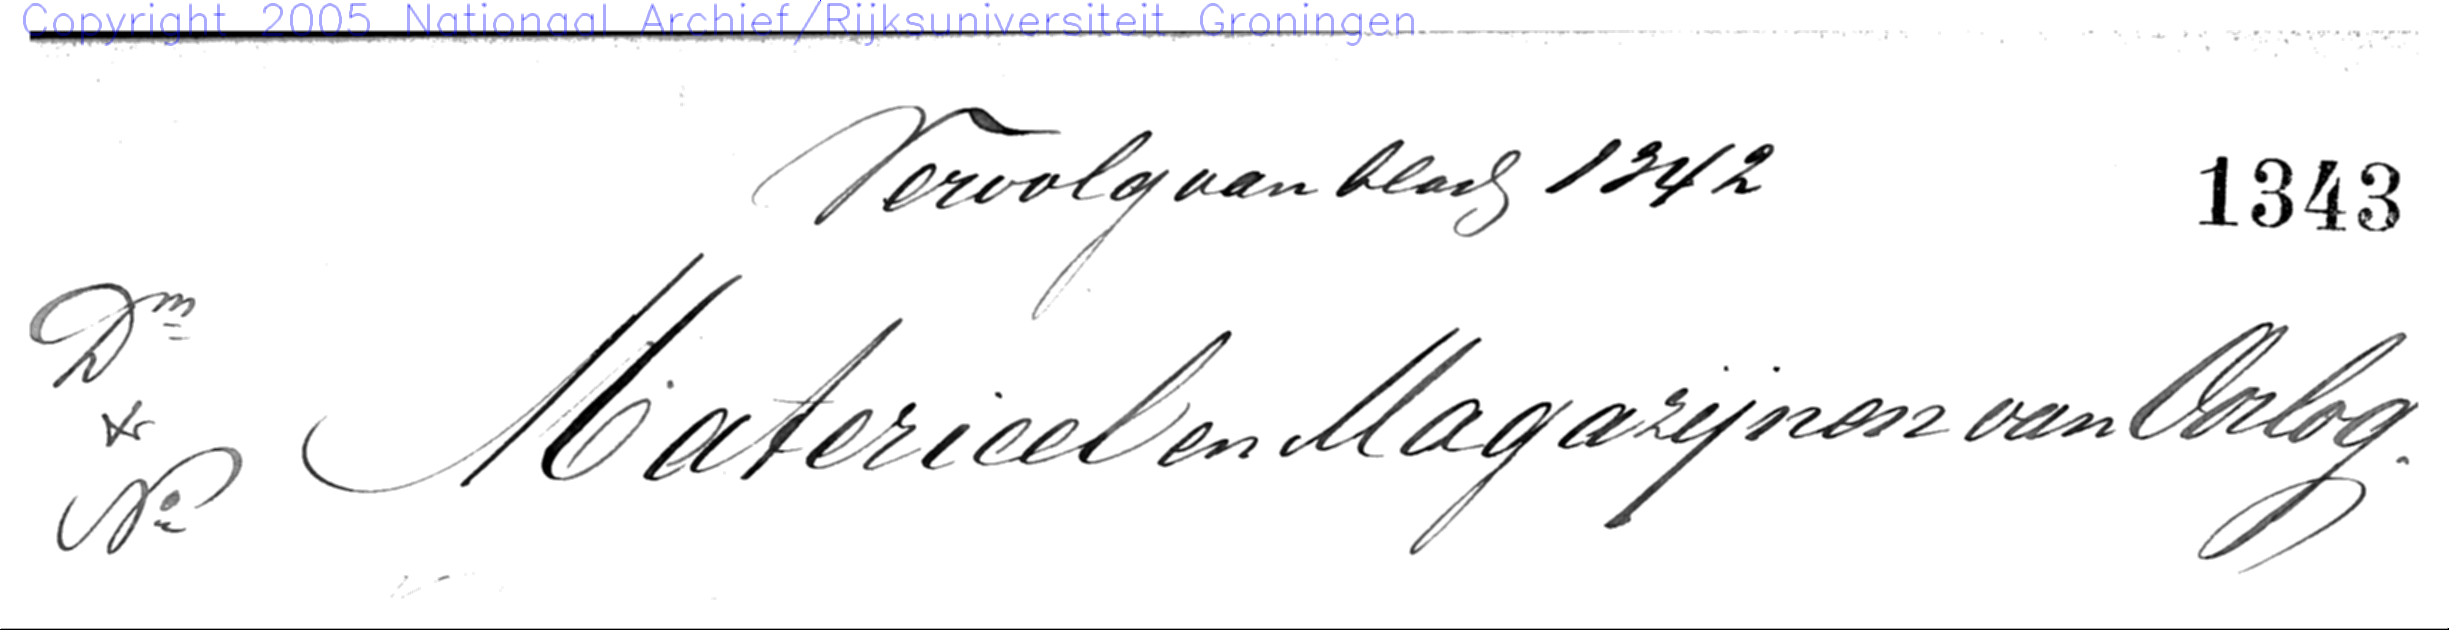 Copyright 2005 Nationaal Archief/Rijksuniversiteit Groningen
Vervolg van bladz 1342
1343
Dm
&
No
Materieel en Magazijnen van Oorlog.